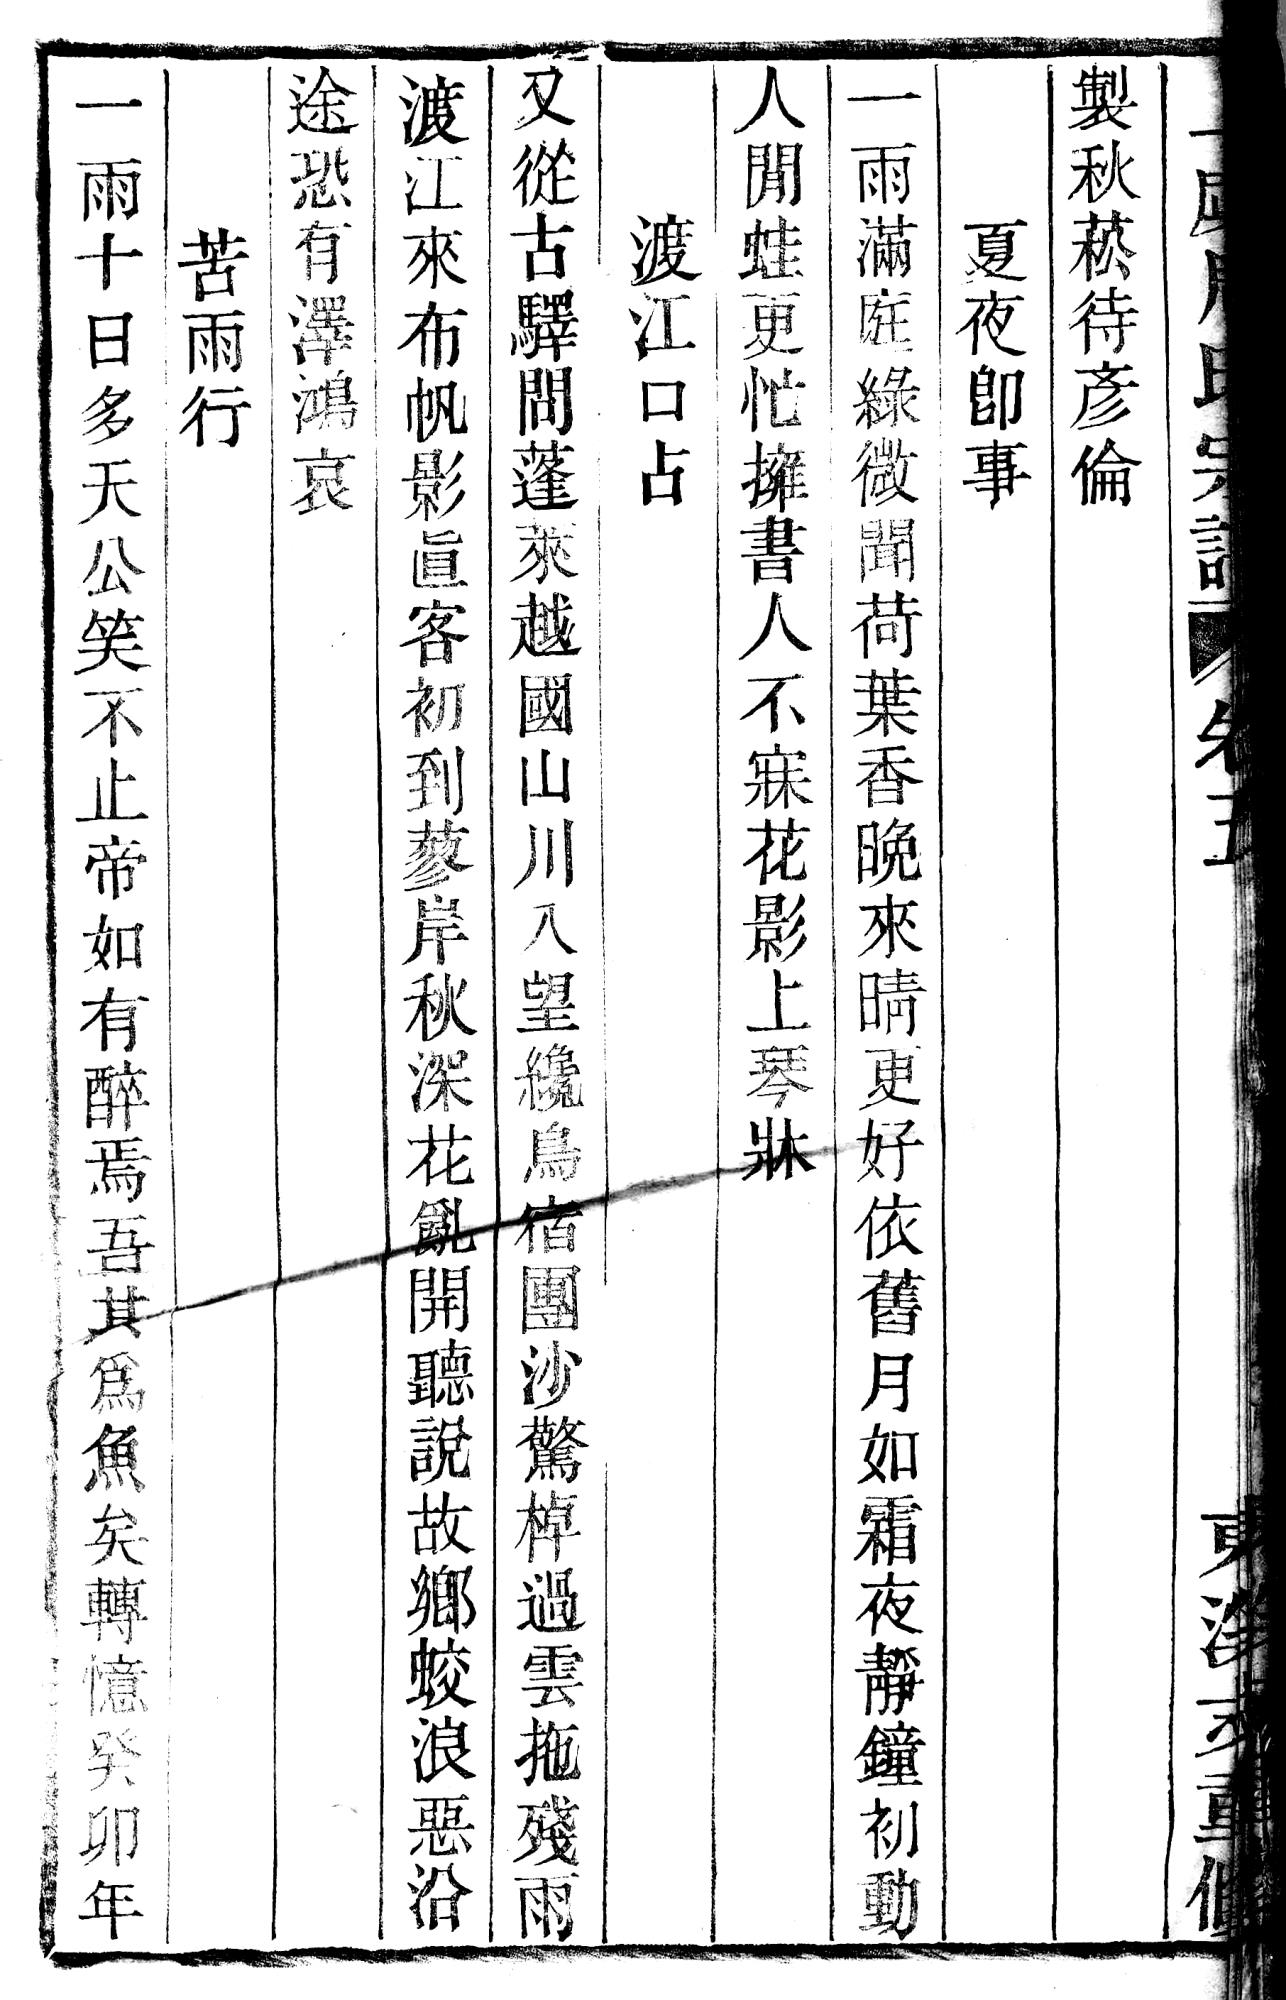 製秋菘待彥倫
夏夜卽事
一雨滿庭綠微聞荷葉香晚來晴更好依舊月如霜夜靜鐘初動
人閒蛙更忙擁書人不寐花影上琴牀
渡江口占
又從古驛問蓬萊越國山川入望纔鳥宿團沙驚棹過雲拖殘雨
渡江來布帆影眞客初到蓼岸秋深花亂開聽說故鄉蛟浪惡沿
途恐有澤鴻哀
苦雨行
一雨十日多天公笑不止帝如有醉焉吾其爲魚矣轉憶癸卯年